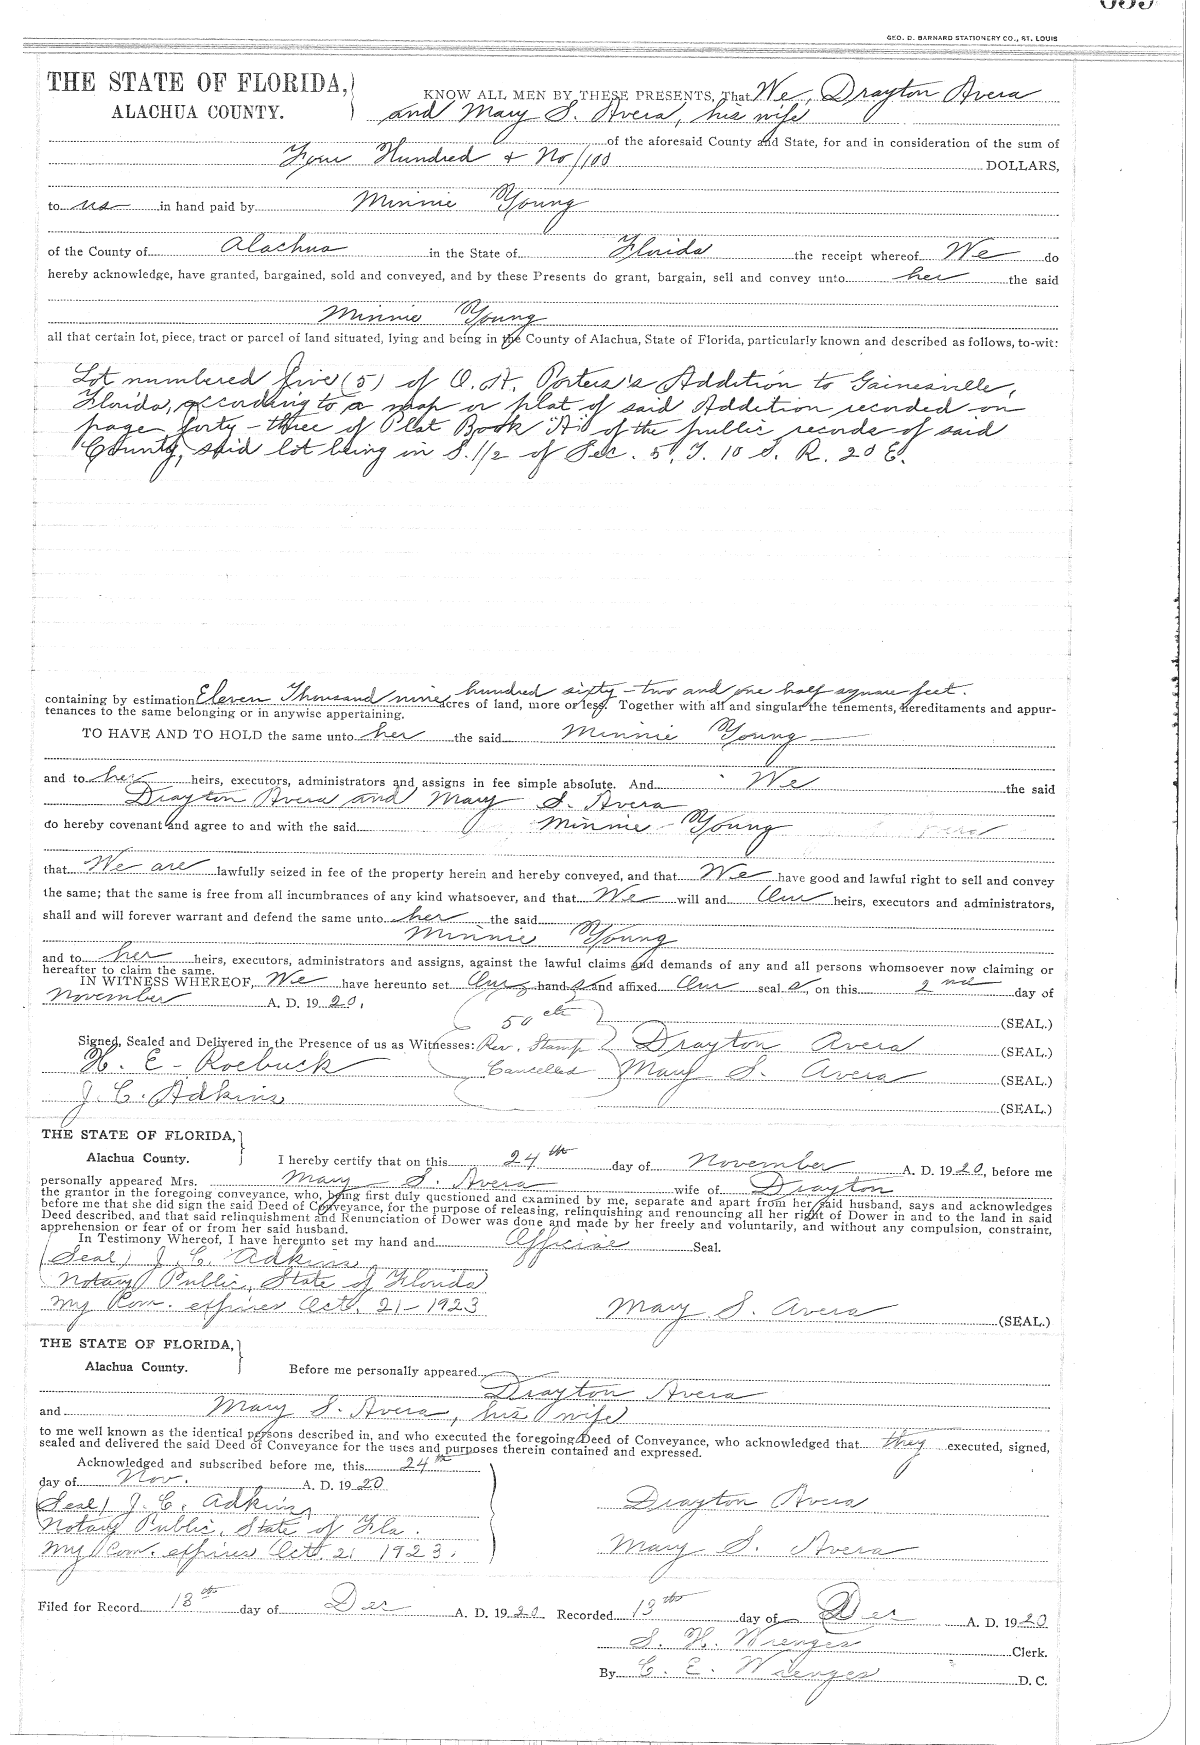 GEO. D. BARNARD STATIONERY CO., ST. LOUIS
THE STATE OF FLORIDA,
ALACHUA COUNTY.
KNOW ALL MEN BY THESE PRESENTS, That We, Drayton Avera
and Mary S. Avera, his wife
of the aforesaid County and State, for and in consideration of the sum of
Four Hundred & No/100 DOLLARS,
to us in hand paid by Minnie Young
of the County of Alachua in the State of Florida the receipt whereof We do
hereby acknowledge, have granted, bargained, sold and conveyed, and by these Presents do grant, bargain, sell and convey unto her the said
Minnie Young
all that certain lot, piece, tract or parcel of land situated, lying and being in the County of Alachua, State of Florida, particularly known and described as follows, to-wit:
Lot numbered five (5) of O. A. Porters's Addition to Gainesville,
Florida, according to a map or plat of said Addition recorded on
page forty-three of Plat Book "A" of the public records of said
County, said lot being in S. 1/2 of Sec. 5, T. 10 S. R. 20 E.
containing by estimation Eleven Thousand nine hundred sixty-two and one half square feet.
acres of land, more or less. Together with all and singular the tenements, hereditaments and appur-
tenances to the same belonging or in anywise appertaining.
TO HAVE AND TO HOLD the same unto her the said Minnie Young
and to her heirs, executors, administrators and assigns in fee simple absolute. And We the said
Drayton Avera and Mary S. Avera
do hereby covenant and agree to and with the said Minnie Young
that We are lawfully seized in fee of the property herein and hereby conveyed, and that We have good and lawful right to sell and convey
the same; that the same is free from all incumbrances of any kind whatsoever, and that We will and Our heirs, executors and administrators,
shall and will forever warrant and defend the same unto her the said
Minnie Young
and to her heirs, executors, administrators and assigns, against the lawful claims and demands of any and all persons whomsoever now claiming or
hereafter to claim the same.
IN WITNESS WHEREOF, We have hereunto set Our hands and affixed Our seal s, on this 2nd day of
November A. D. 1920.
50 cts (SEAL.)
Signed, Sealed and Delivered in the Presence of us as Witnesses: Rev. Stamp Drayton Avera (SEAL.)
H. E. Roebuck Cancelled Mary S. Avera (SEAL.)
J. C. Adkins (SEAL.)
THE STATE OF FLORIDA,
Alachua County.
I hereby certify that on this 24th day of November A. D. 1920, before me
personally appeared Mrs. Mary S. Avera wife of Drayton
the grantor in the foregoing conveyance, who, being first duly questioned and examined by me, separate and apart from her said husband, says and acknowledges
before me that she did sign the said Deed of Conveyance, for the purpose of releasing, relinquishing and renouncing all her right of Dower in and to the land in said
Deed described, and that said relinquishment and Renunciation of Dower was done and made by her freely and voluntarily, and without any compulsion, constraint,
apprehension or fear of or from her said husband.
In Testimony Whereof, I have hereunto set my hand and Official Seal.
(Seal) J. C. Adkins
Notary Public, State of Florida
My Com. expires Oct. 21-1923
Mary S. Avera (SEAL.)
THE STATE OF FLORIDA,
Alachua County.
Before me personally appeared
Drayton Avera
and Mary S. Avera, his wife
to me well known as the identical persons described in, and who executed the foregoing Deed of Conveyance, who acknowledged that they executed, signed,
sealed and delivered the said Deed of Conveyance for the uses and purposes therein contained and expressed.
Acknowledged and subscribed before me, this 24th
day of Nov. A. D. 1920
(Seal) J. C. Adkins, Drayton Avera
Notary Public, State of Fla.
My Com. expires Oct. 21 1923. Mary S. Avera
Filed for Record 13th day of Dec A. D. 1920 Recorded 13th day of Dec A. D. 1920
S. H. Wienges Clerk.
By C. E. Wienges D. C.